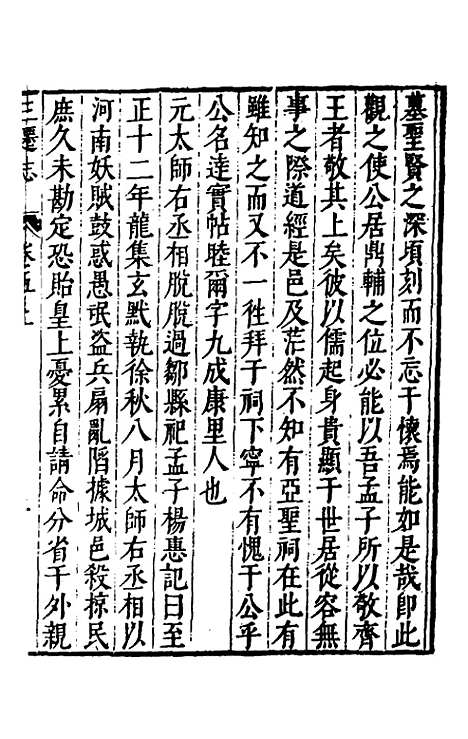 墓聖賢之深頃刻而不忘于懷焉能如是哉卽此
觀之使公居鼎輔之位必能以吾孟子所以敬齊
王者敬其上矣彼以儒起身貴顯于世居從容無
事之際道經是邑及茫然不知有亞聖祠在此有
雖知之而又不一徃拜于祠下寧不有愧于公乎
公名達實帖睦爾字九成康里人也
元太師右丞相脫脫過鄒縣祀孟子楊惠記曰至
正十二年龍集玄黓執徐秋八月太師右丞相以
河南妖賊鼓惑愚氓盜兵扇亂陷據城邑殺掠民
庶久未勘定恐貽皇上憂累自請命分省于外親
三遷志 卷五上